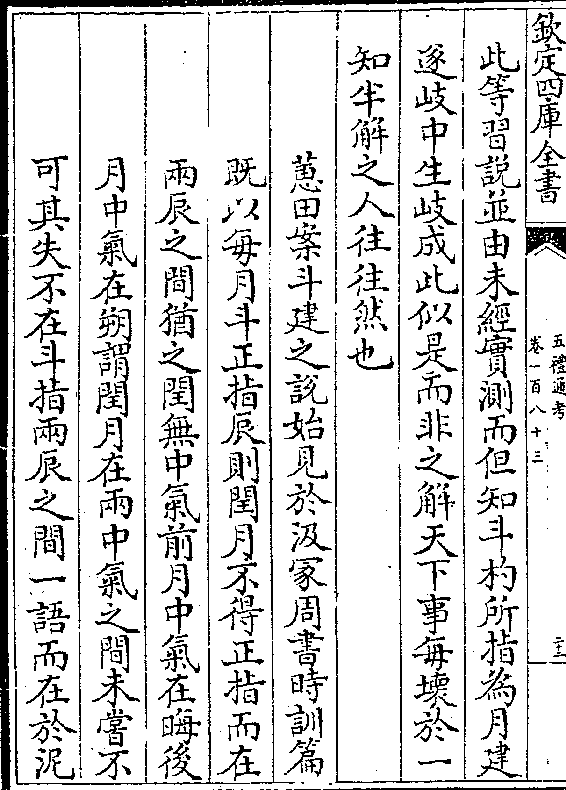 欽定四庫全書
五禮通考
卷一百八十三
此等習説並由未經實測而但知斗杓所指為月建
遂岐中生岐成此似是而非之解天下事每壞於一
知半解之人往往然也
蕙田案斗建之説始見於汲冢周書時訓篇
既以每月斗正指辰則閏月不得正指而在
兩辰之間猶之閏無中氣前月中氣在晦後
月中氣在朔謂閏月在兩中氣之間未嘗不
可其失不在斗指兩辰之間一語而在於泥